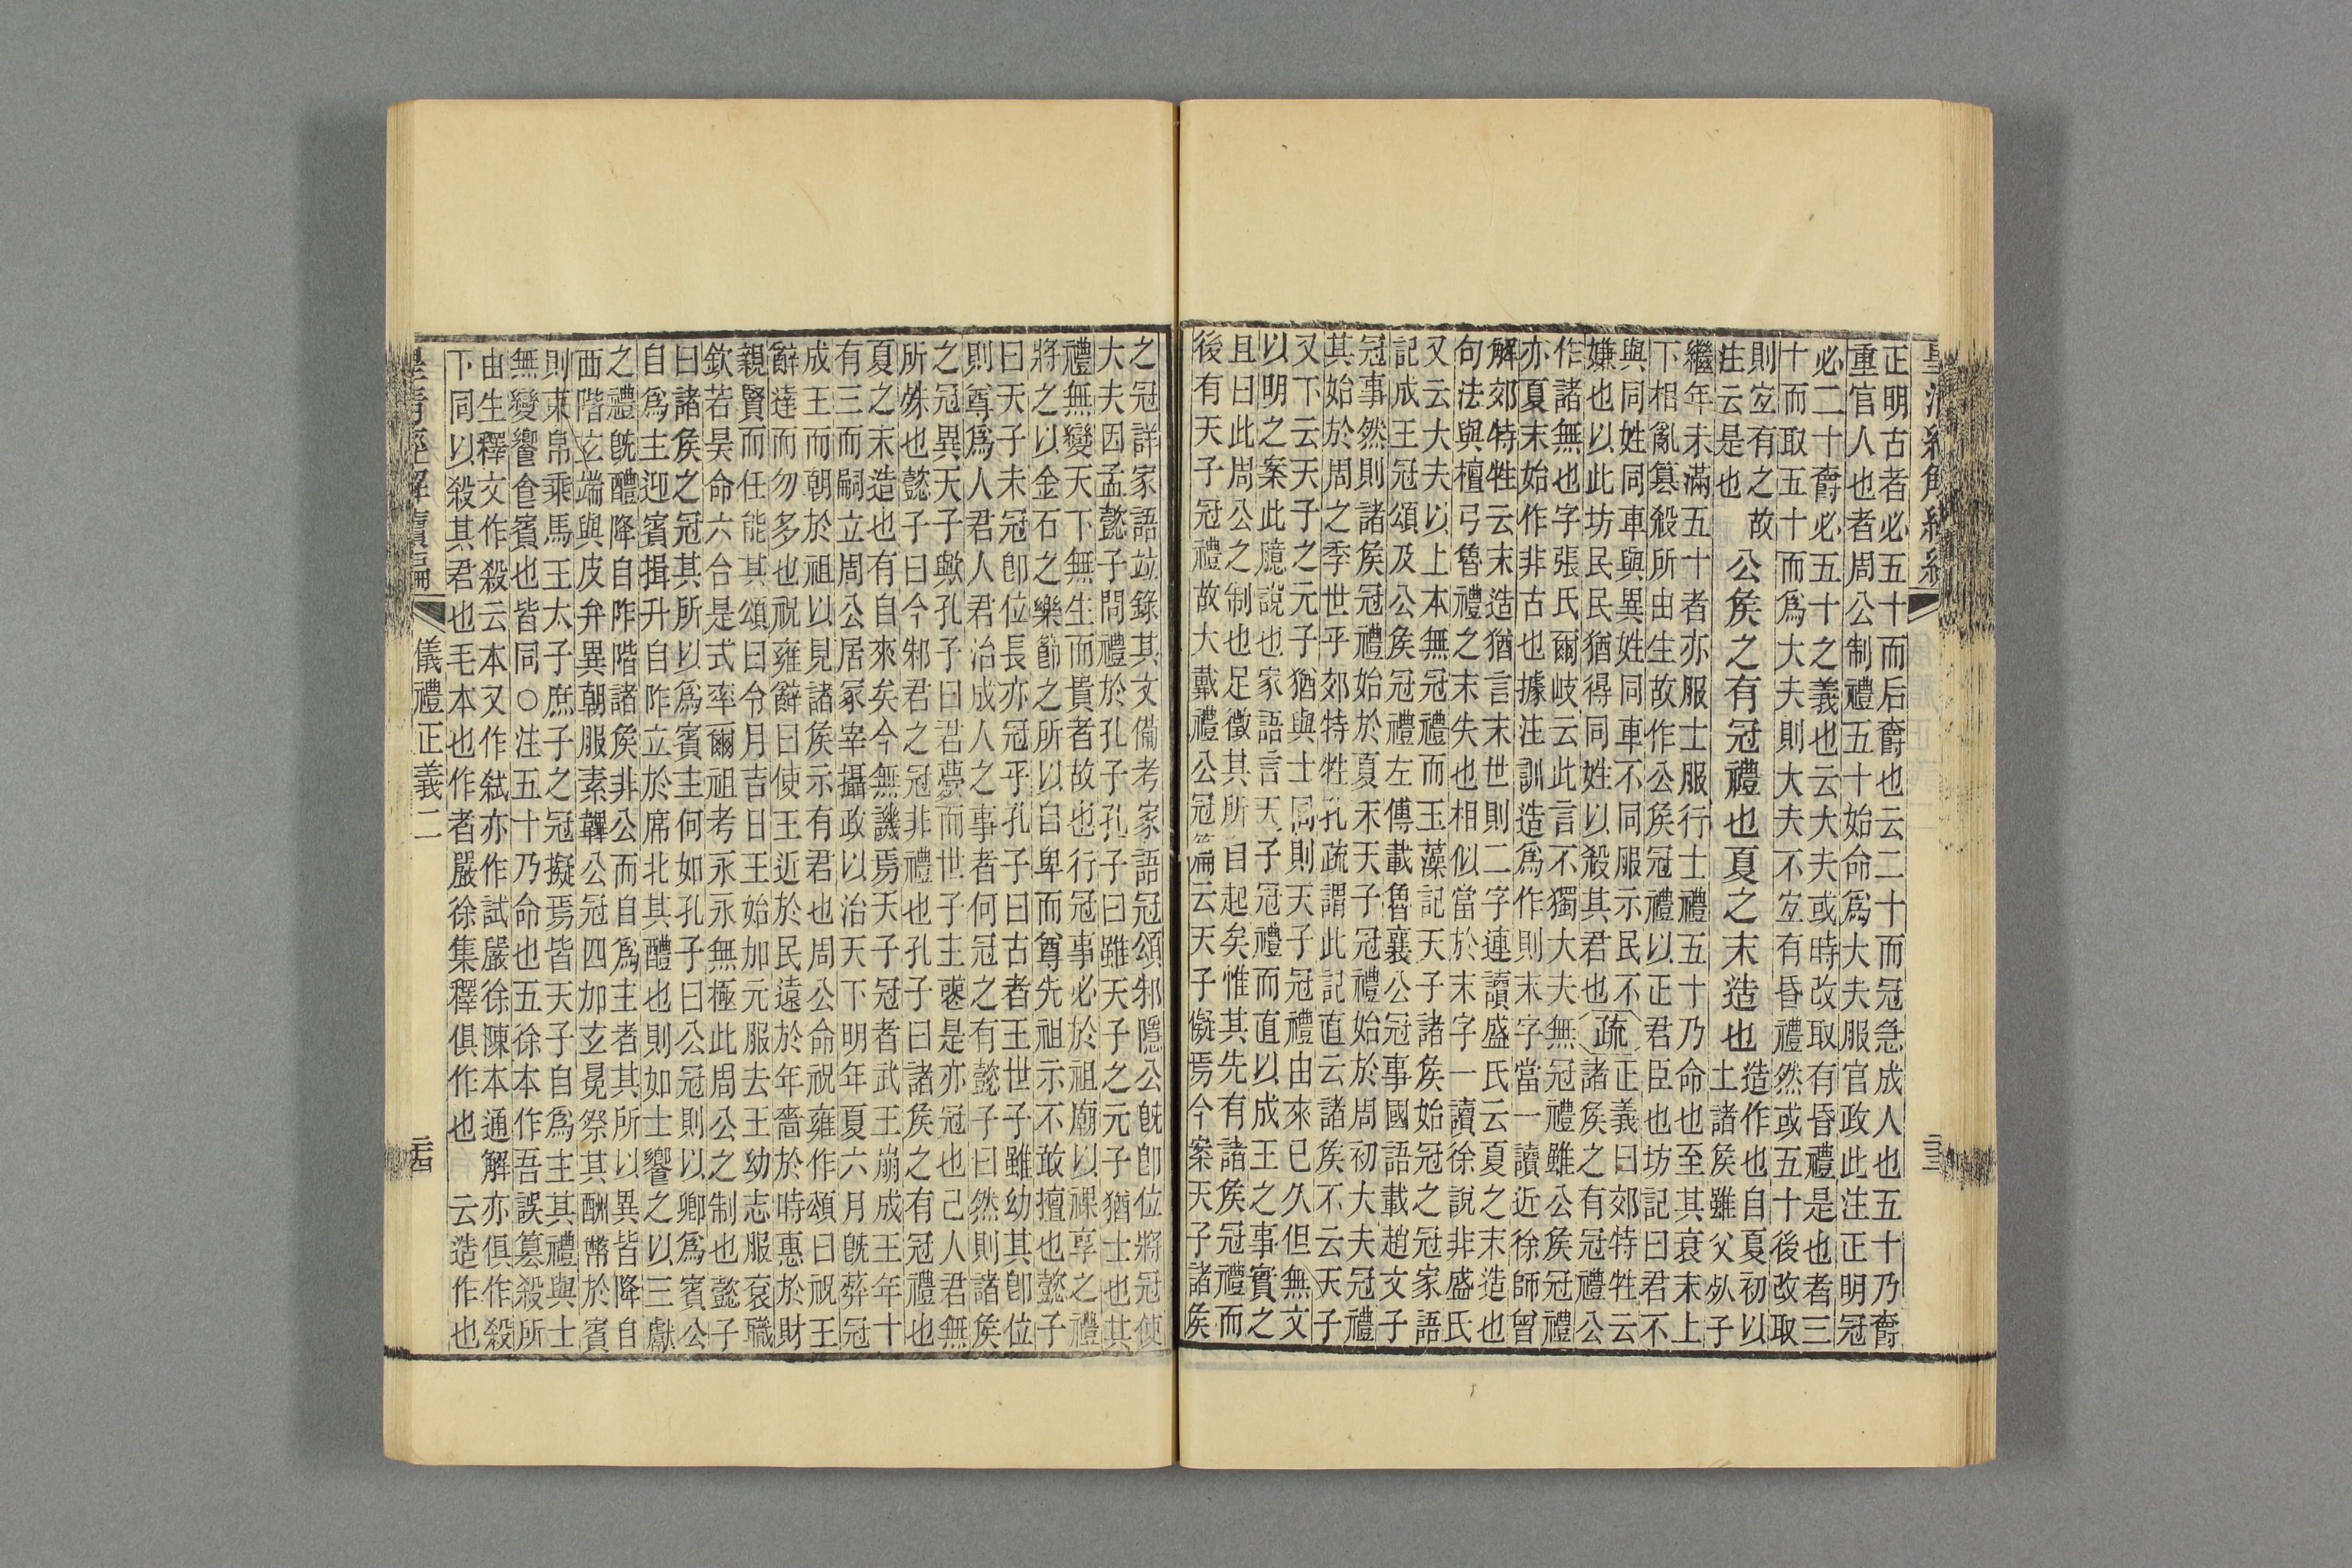 正明古者必五十而后爵也云二十而冠急成人也五十乃爵
重官人也者周公制禮五十始命爲大夫服官政此注正明冠
必二十爵必五十之義也云大夫或時改取有昏禮是也者三
十而取五十而爲大夫則大夫不宜有昏禮然或五十後改取
則宜有之故
注云是也
公矦之有冠禮也夏之末造也
造作也自夏初以
上諸矦雖父死子
繼年未滿五十者亦服士服行士禮五十乃命也至其衰末上
下相亂篡殺所由生故作公矦冠禮以正君臣也坊記曰君不
與同姓同車與異姓同車不同服示民不
嫌也以此坊民民猶得同姓以殺其君也
疏
正義曰郊特牲云
諸矦之有冠禮公
作諸無也字張氏爾岐云此言不獨大夫無冠禮雖公矦冠禮
亦夏末始作非古也據注訓造爲作則末字當一讀近徐師曾
解郊特牲云末造猶言末世則二字連讀盛氏云夏之末造也
句法與檀弓魯禮之末失也相似當於末字一讀徐說非盛氏
又云大夫以上本無冠禮而玉藻記天子諸矦始冠之冠家語
記成王冠頌及公矦冠禮左傳載魯襄公冠事國語載趙文子
冠事然則諸矦冠禮始於夏末天子冠禮始於周初大夫冠禮
其始於周之季世乎郊特牲孔疏謂此記直云諸矦不云天子
又下云天子之元子猶與士同則天子冠禮由來已久但無文
以明之案此臆說也家語言天子冠禮而直以成王之事實之
且曰此周公之制也足徵其所自起矣惟其先有諸矦冠禮而
後有天子冠禮故大戴禮公冠篇云天子儗焉今案天子諸矦
之冠詳家語竝錄其文備考家語冠頌邾隱公旣卽位將冠使
大夫因孟懿子問禮於孔子孔子曰雖天子之元子猶士也其
禮無變天下無生而貴者故也行冠事必於祖廟以祼享之禮
將之以金石之樂節之所以自卑而尊先祖示不敢擅也懿子
曰天子未冠卽位長亦冠乎孔子曰古者王世子雖幼其卽位
則尊爲人君人君治成人之事者何冠之有懿子曰然則諸矦
之冠異天子歟孔子曰君薨而世子主喪是亦冠也已人君無
所殊也懿子曰今邾君之冠非禮也孔子曰諸矦之有冠禮也
夏之末造也有自來矣今無譏焉天子冠者武王崩成王年十
有三而嗣立周公居冢宰攝政以治天下明年夏六月旣葬冠
成王而朝於祖以見諸矦示有君也周公命祝雍作頌曰祝王
辭達而勿多也祝雍辭曰使王近於民遠於年嗇於時惠於財
親賢而任能其頌曰令月吉日王始加元服去王幼志服衮職
欽若昊命六合是式率爾祖考永永無極此周公之制也懿子
曰諸矦之冠其所以爲賓主何如孔子曰公冠則以卿爲賓公
自爲主迎賓揖升自阼立於席北其醴也則如士饗之以三獻
之禮旣醴降自阼階諸矦非公而自爲主者其所以異皆降自
西階玄端與皮弁異朝服素韠公冠四加玄冕祭其酬幣於賓
則束帛乘馬王太子庶子之冠擬焉皆天子自爲主其禮與士
無變饗食賓也皆同○注五十乃命也五徐本作吾誤篡殺所
由生釋文作殺云本又作弑亦作試嚴徐陳本通解亦俱作殺
下同以殺其君也毛本也作者嚴徐集釋俱作也　云造作也
儀禮正義二